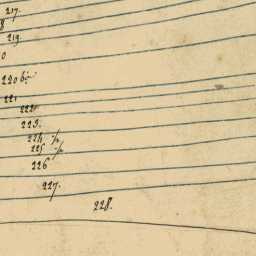 217.
8
219.
0
220 bis
221
222
223.
224. %
225 %
226
227.
228.